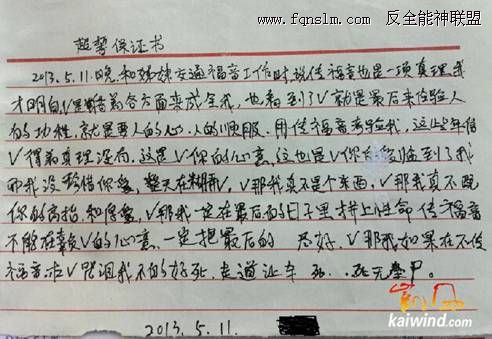 反全能神联盟
www.fqnslm.com
起誓保证书
2013.5.11.晚和姊妹交通福音工作时说传福音也是一项真理.我
才明白V是借着各方面来成全我,也看到了V就是最后来体验人
的功性.就是要人的心.人的顺服.用传福音考验我,这些年信
V得着真理没有,这是V你的心意.这也是V你 临到了我
而我没珍惜你爱,整天在糊弄,V那我真不是个东西,V那我真不配
你的高抬和 爱,V那我一定在最后的日子里拼上性命传福音
不能在辜负V的心意,一定把最后的 尽好,V那,如果在不传
福音求V咒诅我不的好死,走道让车 死无
kaiwind.com
2013.5.11.